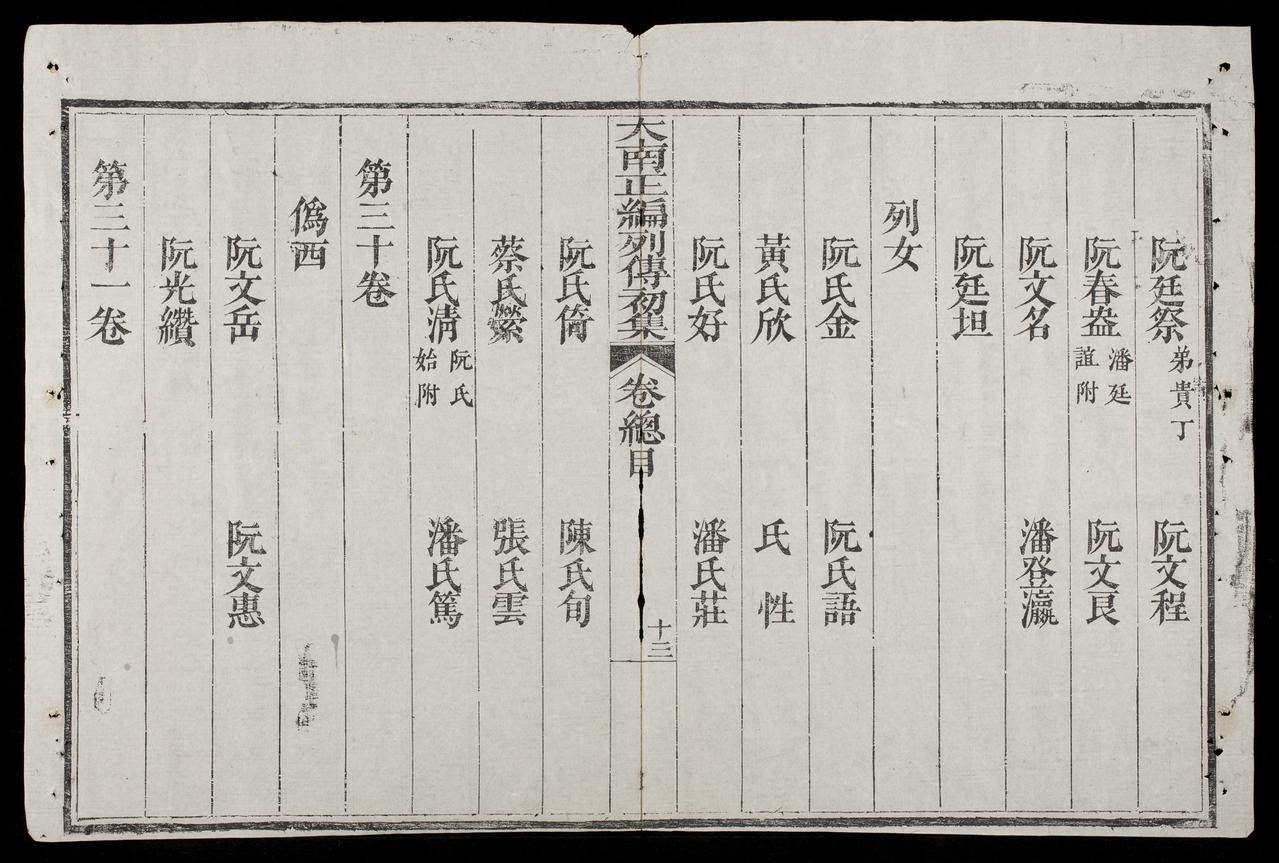 阮廷祭弟貴丁 阮文程
阮春盎潘廷誼附 阮文艮
阮文名 潘登瀛
阮廷坦
列女
阮氏金 阮氏語
黃氏欣 氏性
阮氏好 潘氏莊
大南正編列傳初集 卷總目 十三
阮氏倚 陳氏旬
蔡氏縈 張氏雲
阮氏清阮氏始附 潘氏篤
第三十卷
僞西
阮文岳 阮文惠
阮光纘
第三十一卷